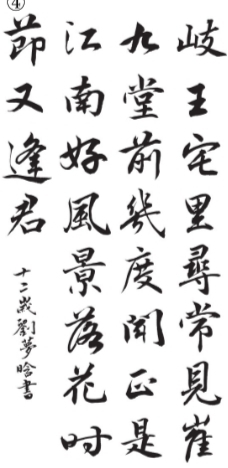 ④
岐王宅里尋常見崔
九堂前幾度聞正是
江南好風景落花时
節又逢君
十二歲劉夢晗書